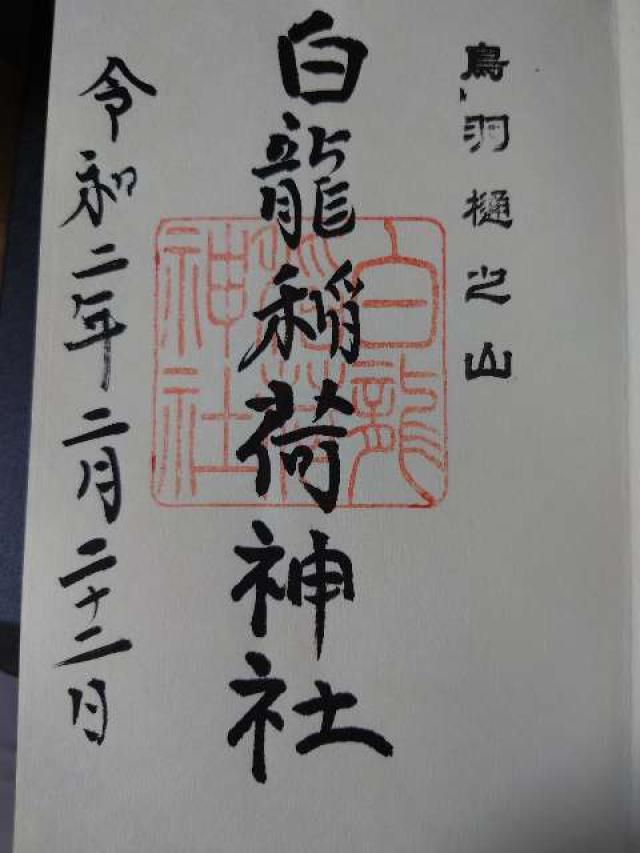 鳥羽樋之山
白龍稲荷神社
白龍
稲荷
神社
令和二年二月二十二日